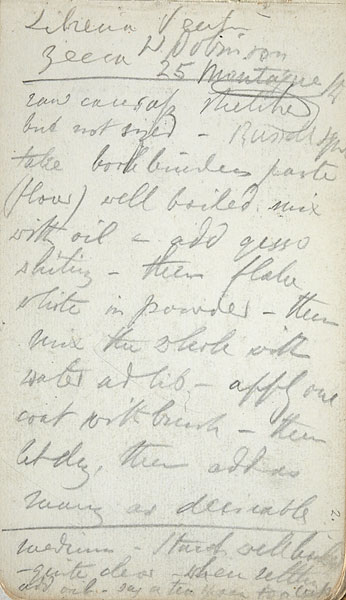 W Robinson
Zecca 25 Montague St
raw canvas stretched
but not sized - Russell Sq
take bookbinders paste
(flour) well boiled mix
with oil - add gesso
whiting - then flake
white in powder - then
mix the whole with
water ad lib - apply one
coat with brush - then
let dry, then add as
many as desirable
2.
medium - Starch well boiled
- quite clear - when
add oil - say a ten